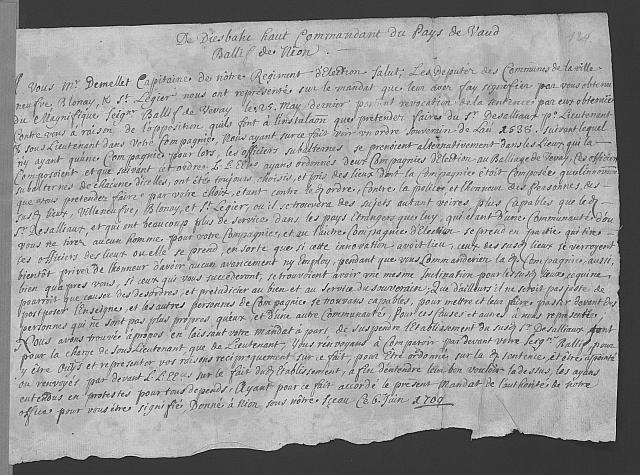 124
De Diesbahc haut Commandant du Pays de Vaud
Ballif de Nion.
A Vous Mr. Demellet Capitaine de nôtre Regiment d'Election Salut; Les deputez des Communes de la ville-
neufve, Blonay, & St. Légier nous ont représenté sur le mandat que leur avez fay signifier par vous obtenu
du Magnifique Seigr. Ballif de Vevay le 25. May dernier portant revocation de la sentence par eux obtenüe
Contre vous à raison de l'opposition qu'ils font à l'instalaõn que pretendez faires du Sr. Desailliaux pr. Lieutenant
& sous Lieutenant dans vôtre Compagnie, Nous ayant sur ce fait voir vn ordre souverain de Lan 1638. suivant lequel
n'y ayant qu'une Compagnie pour lors, les officiers subalternes se prenoient alternativement dans les Lieux qui la
Composoient et que suivant cet ordre L.L.EEes. ayans ordonnés deux Compagnies d'Election au Balliage de Vevay, les officiers
subalternes de chacune d'icelles, ont étés toujours choisis, et pris des lieux dont la Compagnie étoit Composée
que vous pretendez faire par votre choix, étant contre led. ordre, contre la police et l'honneur des personnes, des
susd. lieux, Villeneufve, Blonay, et St. Légier, ou il se trouvera des sujets autant voires, plus Capables que led.
Sr. Desailliaux, et qui ont beaucoup plus de service dans les pays étrangers que luy, qui étant d'une Communauté d'ou
vous ne tirez aucun homme pour votre Compagnie, et au l'autre Compagnie d'Election se prend en partie qui tire
ses officiers des lieux ou elle se prend en sorte que si cette innovation avoit lieu, ceux des susd. lieux se verroyent
bientôt privez de l'honneur d'avoir aucun avancement ny Employ, pendant que vous Commanderiez lad. Compagnie, aussi,
bien qu'apres vous, si ceux qui vous succederont, se trouvoient avoir une mesme Inclination pour les susd. lieux, ce qui ne
pourroit que causer des desordres, et prejudicier au bien et au service du souverain; Que d'ailleurs il ne seroit pas juste de
postposer l'enseigne, et les autres personnes de Compagnie se trouvans capables, pour mettre et leur faire passer devant des
personnes qui ne sont pas plus propres qu'eux et d'une autre Communauté, Pour ces causes et autres à nous representée
Nous avons trouvé à propos en laissant votre mandat à part, de suspendre l'Etablissement du susd. Sr. Desailliaux tant
pour la charge de sous Lieutenant, que de Lieutenant, Vous renvoyans à Comparoir par devant votre Seigr. Ballif, pour
y être Ouÿs et representer vos raisons reciproquement sur ce fait, pour Etre ordonné sur lad. sentence, et être
ou renvoyés par devant L.L.EEes. sur le fait dud. Etablissement, afin d'entendre leur bon vouloir la dessus, les ayans
entendus en protestes pour tous depends; Ayant pour ce fait accordé le present Mandat de l'authorité de notre
office pour vous être signifié Donné à Nion sous nôtre sceau Ce 6. Juin 1709